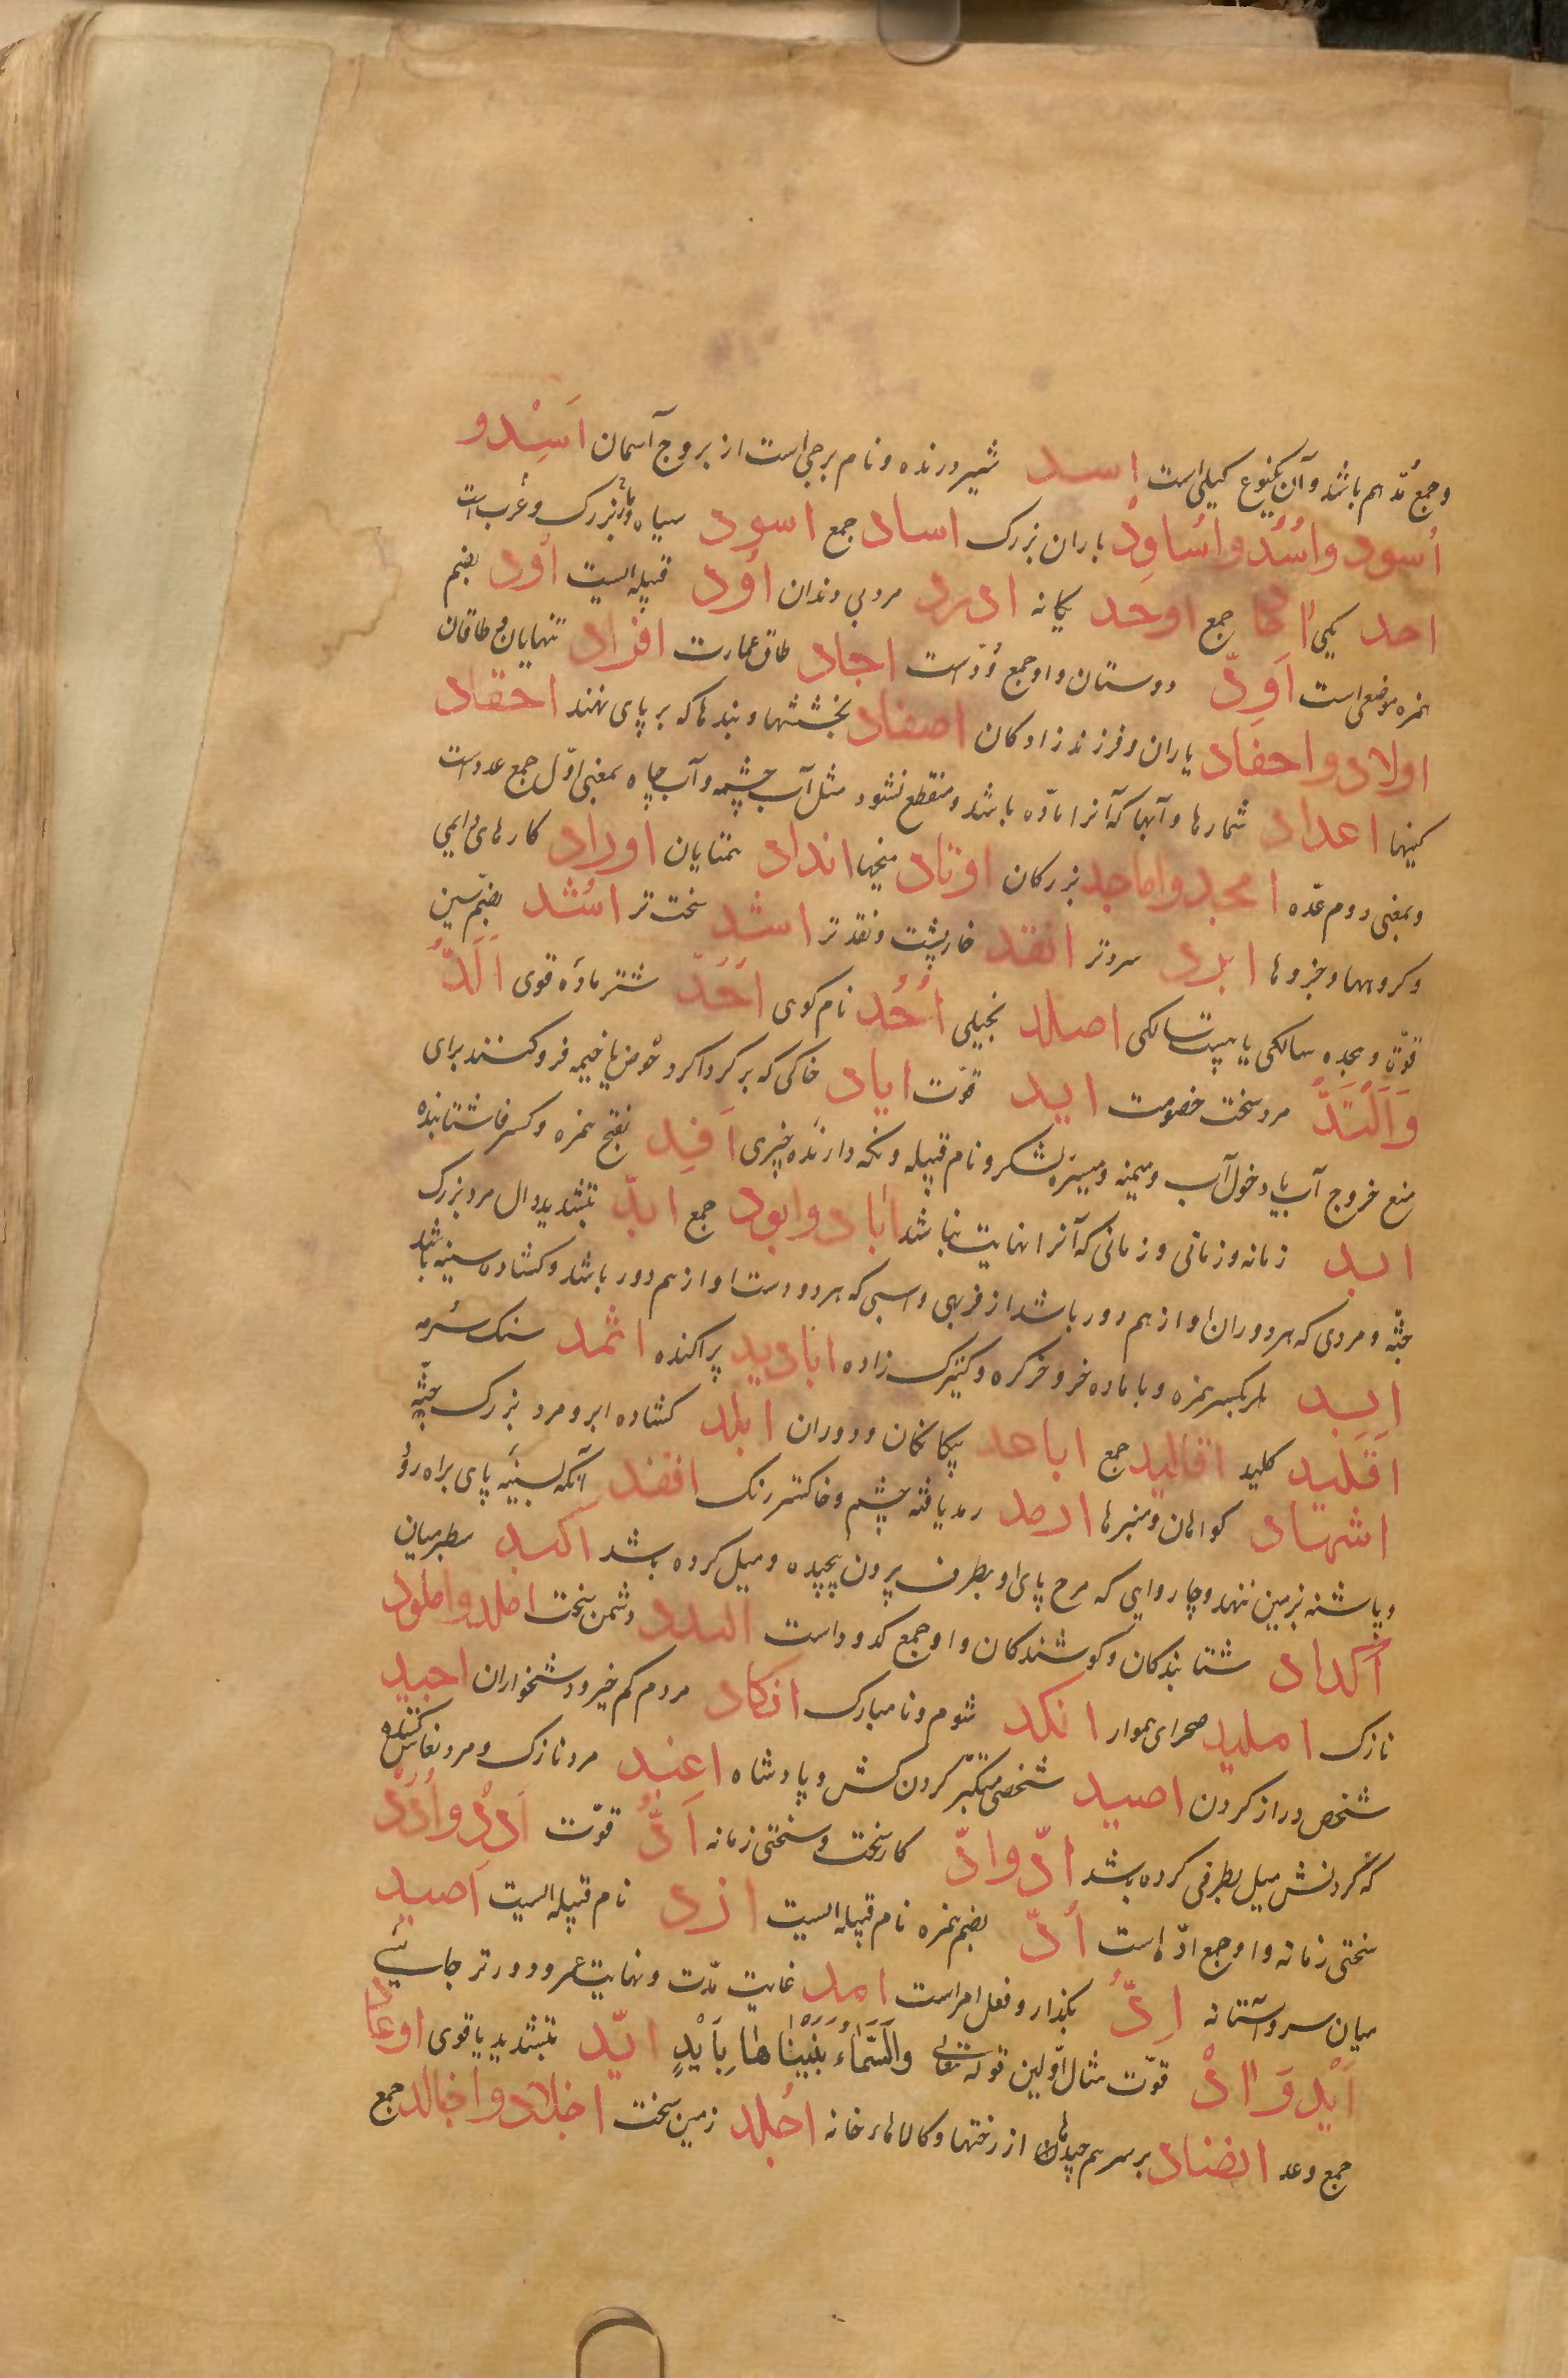 و جمع مدّ هم باشد و آن یکنوع کیلی است اسد شیر درنده و نام برجی است از بروج آسمان اَسِْد و
اُسود و اُسُد و اُساوِد باران بزرک اساد جمع اسود سیاه و مار بزرک و عُرب است
احد یکی اٰحاد جمع اوحد یکانه ادرد مرد بی دندان اَوْد قبیله ایست اُود بضم
همزه موضعی است اَوِدّ دوستان و او جمع وُدّ است اجاد طاق عمارت افراد تنهایان و طاقان
اولاد و احفاد یاران و فرزند زادکان اصفاد بخششها و بندها که بر پای نهند احقاد
کینها اعداد شمارها و آبها که آنرا مادّه باشد و منقطع نشود مثل آب چشمه و آب چاه بمعنی اوّل جمع عدد است
و بمعنی دوم عدّه امجد و اماجد بزرکان اوتاد میخها انداد همتایان اوراد کارهای دایمی
و کروهها و جزوها ابرد سردتر انقد خارپشت و نقدتر اشد سخت تر اَشُد بضمّ شین
قوّت و هجده سالکی یا بیست سالکی اصلد بخیلی اُحُد نام کوی اَحَدّ شتر مادّه قوی اَلَدّ
وَ اَلَنْدَدّ مرد سخت خصومت اید قوّت ایاد خاکی که بر کرداکرد حوض یا خیمه فرو کنند برای
منع خروج آب یا دخول آب و میمنه و میسرهٔ لشکر و نام قبیله و نکه دارندهٔ خیری اَفِد بفتح همزه و کسر فا شتابنده
ابد زمانه و زمانی و زمانی که آنرا نهایت نباشد اٰباد و ابود جمع ابدّ بتشدید دال مرد بزرک
جثّه و مردی که هر دو ران او از هم دور باشد از فربهی و اسبی که هر دو دست او از هم دور باشد و کشاده سینه باشد
اِبِد بکسر همزه و با ماده خر و خرکره و کنیزک زاده ابادید پراکنده اثمد سنک سُرمه
اقلید کلید اقالید جمع اباعد بیکانکان و دوران ابلد کشاده ابرو مرد بزرک جثّه
اشهاد کواهان و منبرها ارمد رمد یافته چشم و خاکستر رنک اقفد آنکه بسینهٔ پای براه رود
و پاشنه بزمین ننهد و چاروایی که سم پای او بطرف برون پیچیده و میل کرده باشد اکبد سطبر میان
اَکداد شتابندکان و کوشندکان و او جمع کدود است الندد دشمن سخت املد و املود
نازک املید صحرای هموار انکد شوم و نامبارک انکاد مردم کم خیر و دشخواران اجید
شخص دراز کردن اصید شخصی متکبّر کردن کش و پادشاه اغید مرد نازک و مرد نعاس کننده
که کردنش میل بطرفی کرده باشد ادّ و ادّ کار سخت و سختی زمانه اَدّ قوّت اَدُد و اُدَد
سختی زمانه و او جمع ادّه است اُدّ بضم همزه نام قبیله ایست ازد نام قبیله ایست اَصید
میان سر و آستانه اِدّ بکذار و فعل امر است امد غایت مدّت و نهایت عمر و دورتر جائیے
اَیْد وَ اٰدْ قوّت مثال اوّلین قوله تعالی وَالسَّمَاءَ بَنَیْنَاهَا بِاَیْدٍ ایّد بتشدید یا قوی اوعاد
جمع وعد انضاد بر سر هم چیدها از رختها و کالاهاء خانه اَجلد زمین سخت اجلاد و اجالد جمع